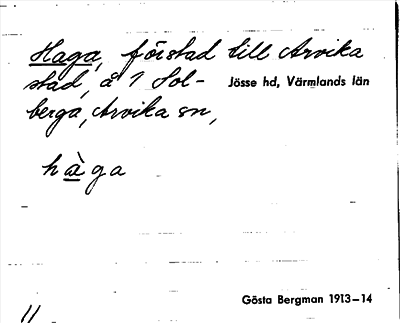 Haga, förstad till Arvika
stad, å 1 Sol-
Jösse hd, Värmlands län
berga, Arvika sn,
hàga
Gösta Bergman 1913-14